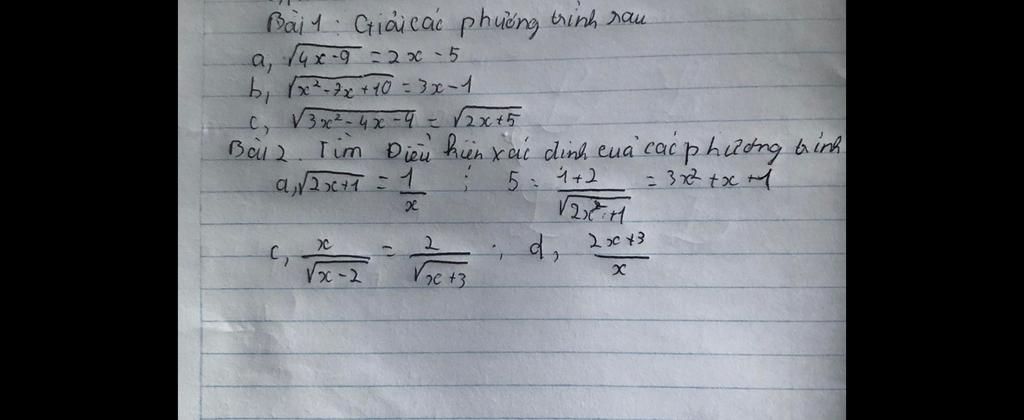 Bài 1: Giải các phương trình sau
a, √4x-9 = 2x - 5
b, √x²-7x+10 = 3x-1
c, √3x²-4x-4 = √2x+5
Bài 2. Tìm Điều kiện xác định của các phương trình
a, √2x+1 = 1/x ; 5 = 1+2/√2x²+1 = 3x²+x+1
c, x/√x-2 = 2/√x+3 ; d, 2x+3/x